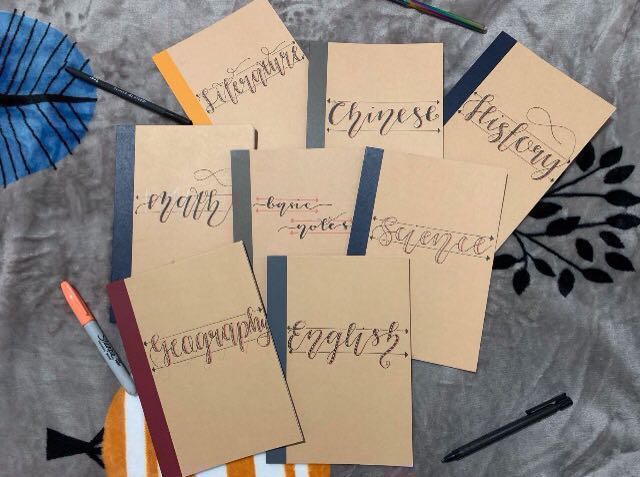 Literature
Chinese
History
math
bujo
notes
Science
Geography
English
SHARPIE